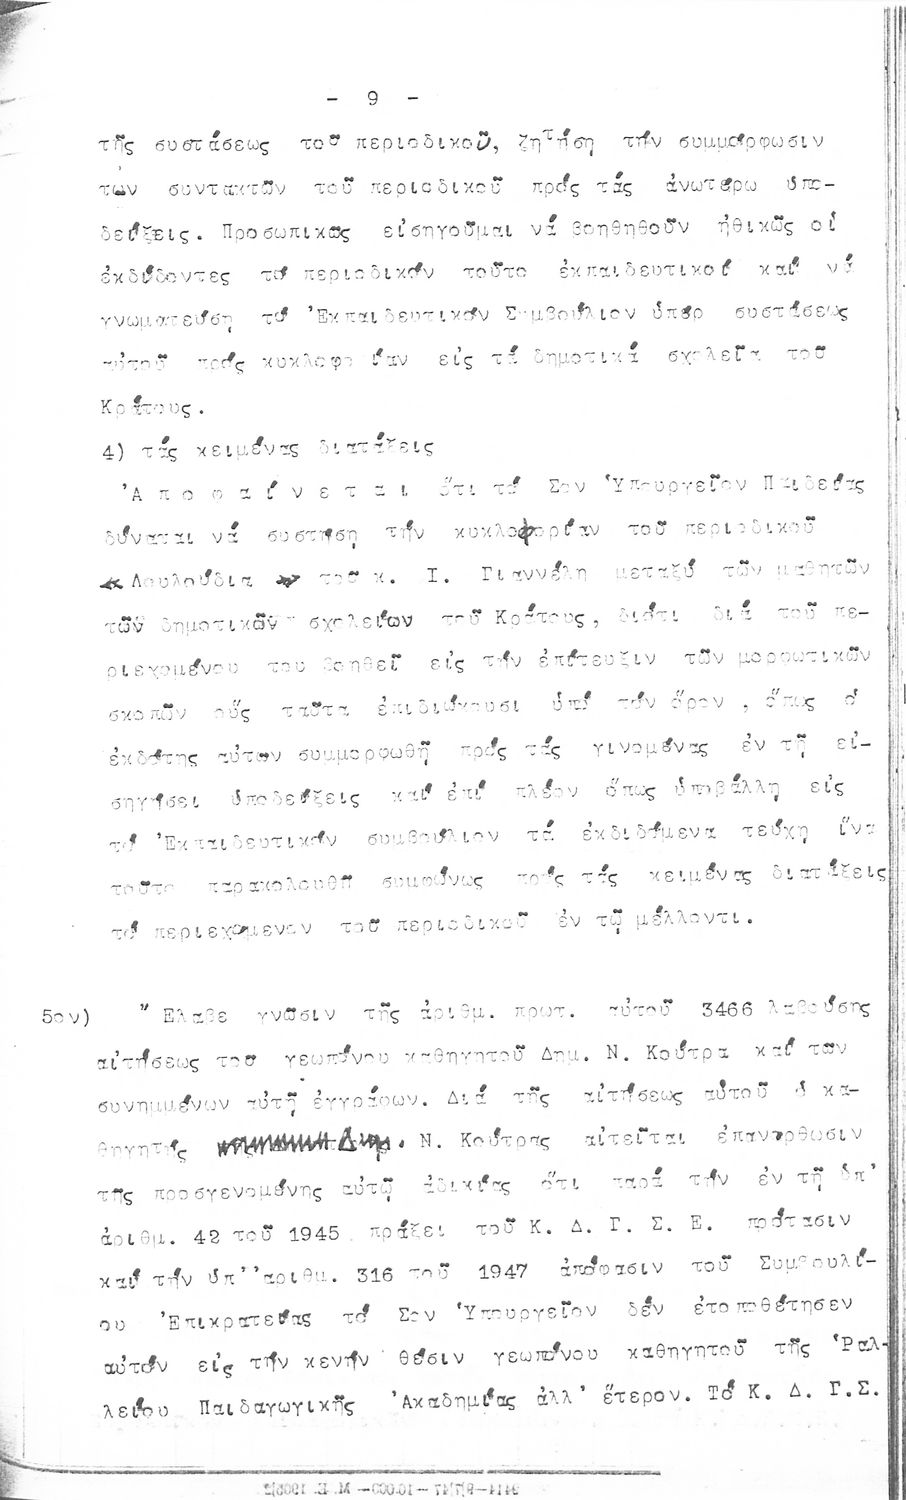 - 9 -
τῆς συστάσεως τοῦ περιοδικοῦ, ζητήση τήν συμμόρφωσιν
των συντακτῶν τοῦ περιοδικοῦ πρός τάς ἀνωτέρω ὑπο-
δείξεις. Προσωπικῶς εἰσηγοῦμαι νά βοηθηθοῦν ἠθικῶς οἱ
ἐκδίδοντες τό περιοδικόν τοῦτο ἐκπαιδευτικοί καί νά
γνωματεύση τό Ἐκπαιδευτικόν Συμβούλιον ὑπέρ συστάσεως
αὐτοῦ πρός κυκλοφο ίαν εἰς τά δημοτικά σχολεῖα τοῦ
Κράτους.
4) τάς κειμένας διατάξεις
Ἀ π ο φ α ί ν ε τ α ι ὅτι τό Σον Ὑπουργεῖον Παιδείας
δύναται νά συστήση τήν κυκλοφορίαν τοῦ περιοδικοῦ
« Λουλούδια » τοῦ κ. Ι. Γιαννέλη μεταξύ τῶν μαθητῶν
τῶν δημοτικῶν σχολείων τοῦ Κράτους, διότι διά τοῦ πε-
ριεχομένου του βοηθεῖ εἰς τήν ἐπίτευξιν τῶν μορφωτικῶν
σκοπῶν οὕς ταῦτα ἐπιδιώκουσι ὑπί τόν ὅρον , ὅπως ὁ
ἐκδότης αὐτων συμμορφωθῆ πρός τάς γινομένας ἐν τῆ εἰ-
σηγήσει ὑποδείξεις καί ἐπί πλέον ὅπως ὑποβάλλη εἰς
τό Ἐκπαιδευτικόν συμβούλιον τά ἐκδιδόμενα τεύχη ἵνα
τοῦτο παρακολουθῆ συμφώνως πρός τάς κειμένας διατάξεις
τό περιεχόμενον τοῦ περιοδικοῦ ἐν τῷ μέλλοντι.
5ον) " Ελαβε γνῶσιν τῆς ἀριθμ. πρωτ. αὐτοῦ 3466 λαβούσης
αἰτήσεως του γεωπόνου καθηγητοῦ Δημ. Ν. Κούτρα καί των
συνημμένων αὐτῆ ἐγγράφων. Διά τῆς αἰτήσεως αὐτοῦ ὁ κα-
θηγητής Δημ. Ν. Κούτρας αἰτεῖται ἐπανόρθωσιν
τῆς προσγενομένης αὐτῷ ἀδικίας ὅτι παρά τήν ἐν τῆ ὑπ'
ἀριθμ. 42 τοῦ 1945 πράξει τοῦ Κ. Δ. Γ. Σ. Ε. πρότασιν
καί τήν ὑπ''αριθμ. 316 τοῦ 1947 ἀπόφασιν τοῦ Συμβουλί-
ου Ἐπικρατείας τό Σον Ὑπουργεῖον δέν ἐτοποθέτησεν
αὐτόν εἰς τήν κενήν θέσιν γεωπόνου καθηγητοῦ τῆς Ῥαλ-
λείου Παιδαγωγικῆς Ἀκαδημίας ἀλλ' ἕτερον. Τό Κ. Δ. Γ.Σ.